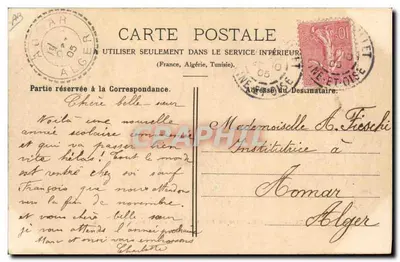 CARTE POSTALE
UTILISER SEULEMENT DANS LE SERVICE INTÉRIEUR
(France, Algérie, Tunisie).
Partie réservée à la Correspondance.
Adresse du Destinataire.
Chère belle-sœur
Voilà une nouvelle
année scolaire
et qui va passer bien
vite hélas! Tout le monde
est rentré chez soi sauf
François que nous attendons
la fin de novembre.
et vous chère belle sœur
je vous attends l'année prochaine
Marc et moi vous embrassons
Charlotte
Mademoiselle A. Fieschi
Institutrice à
Aomar
Alger
ALGER
05
ET-OISE
CARTORUM